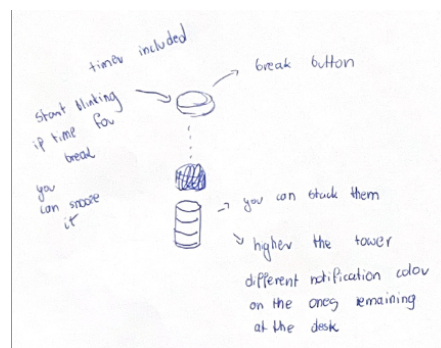 timer included
break button
start blinking
if time for
break
you
can snooze
it
you can stack them
higher the tower
different notification color
on the ones remaining
at the desk